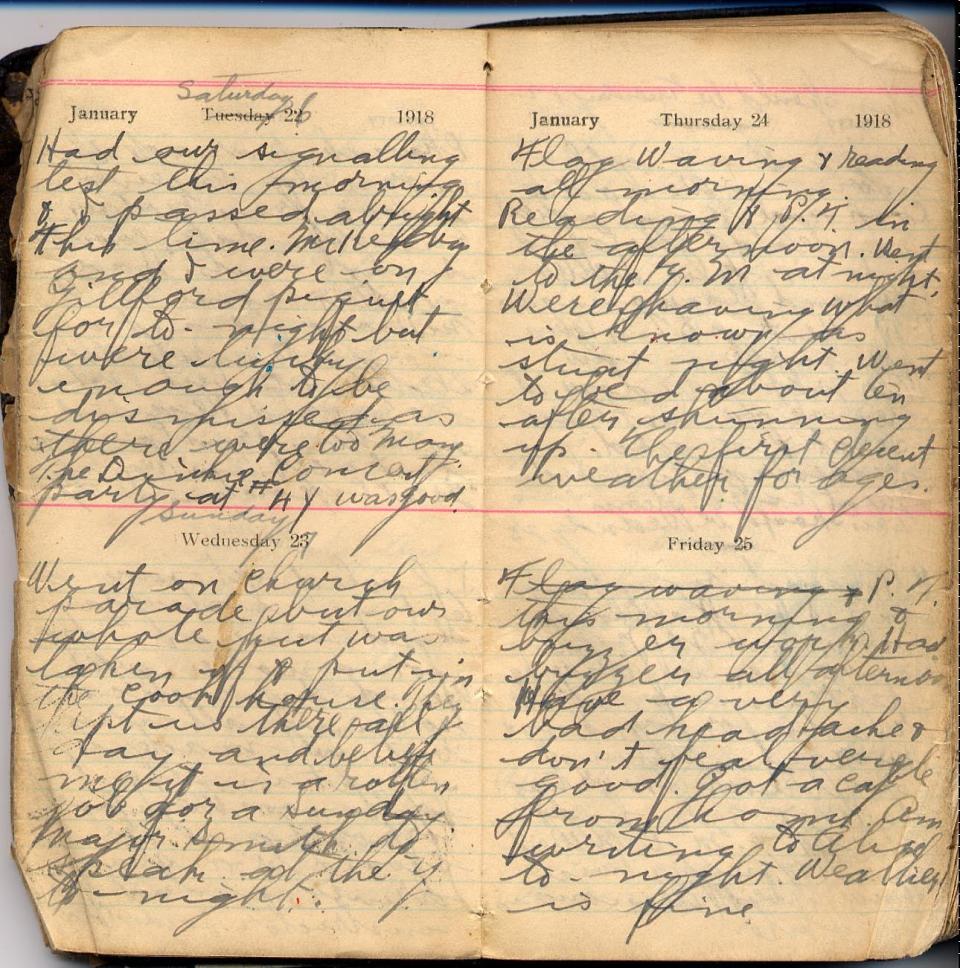 Saturday
January Tuesday 22 1918
Had our signalling
test this morning
& I passed alright
this time. McKellby
and I were on
Gillford piquet
for to-night but
were lucky
enough to be
dismissed as
there were too many.
The Dumbe Concert
party at H H Y was good.
Sunday
Wednesday 23
Went on Church
parade but our
whole hut was
taken off & put in
the cook house. They
kept us there all
day and believe
me it is a rotten
job for a Sunday.
Major Smith
speak at the Y
to-night.
January Thursday 24 1918
Flag Waving & reading
all morning.
Reading & P.T. in
the afternoon. Went
to the Y. M at night.
Were having what
is known as
stunt night. Went
to bed about ten
after shinning
up. The first decent
weather for ages.
Friday 25
Flag waving & P.T.
this morning &
buzzer work. Had
buzzer all afternoon
Have a very
bad head ache &
don't feel very
good. Got a cable
from home. Am
writing to
to-night. Weather
is fine.